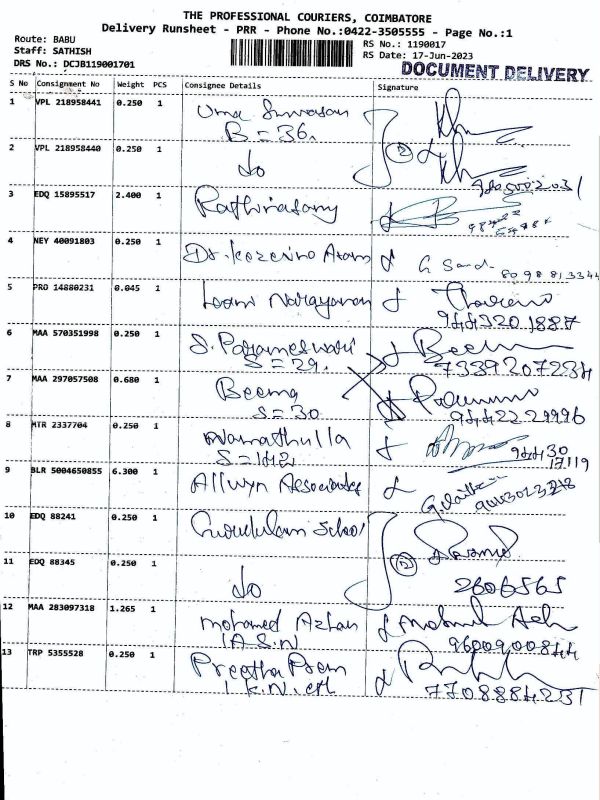 THE PROFESSIONAL COURIERS, COIMBATORE
Delivery Runsheet - PRR - Phone No.:0422-3505555 - Page No.:1
Route: BABU
RS No.: 1190017
Staff: SATHISH
RS Date: 17-Jun-2023
DRS No.: DCJB119001701
DOCUMENT DELIVERY
S No Consignment No Weight PCS Consignee Details Signature
1 VPL 218958441 0.250 1 Uma
B = 36.
2 VPL 218958440 0.250 1 do
2
3 EDQ 15895517 2.400 1
4 NEY 40091803 0.250 1 Dr.
80 98 8 13344
5 PRO 14880231 0.045 1 Laxmi Narayanan
944320 1887
6 MAA 570351998 0.250 1 S. Parameswari Beema
S = 29. 7339207234
7 MAA 297057508 0.680 1 Beema
S = 30 9442229996
8 MTR 2337704 0.250 1
S = 142 94430
17119
9 BLR 5004650855 6.300 1 Allwyn Associates
10 EDQ 88241 0.250 1 Gurukulam School
2
11 EDQ 88345 0.250 1 do 2606565
12 MAA 283097318 1.265 1 Mohamed Azhar
I A.S.N 9600900844
13 TRP 5355528 0.250 1 Preetha Prem
I K.N. 7708884231